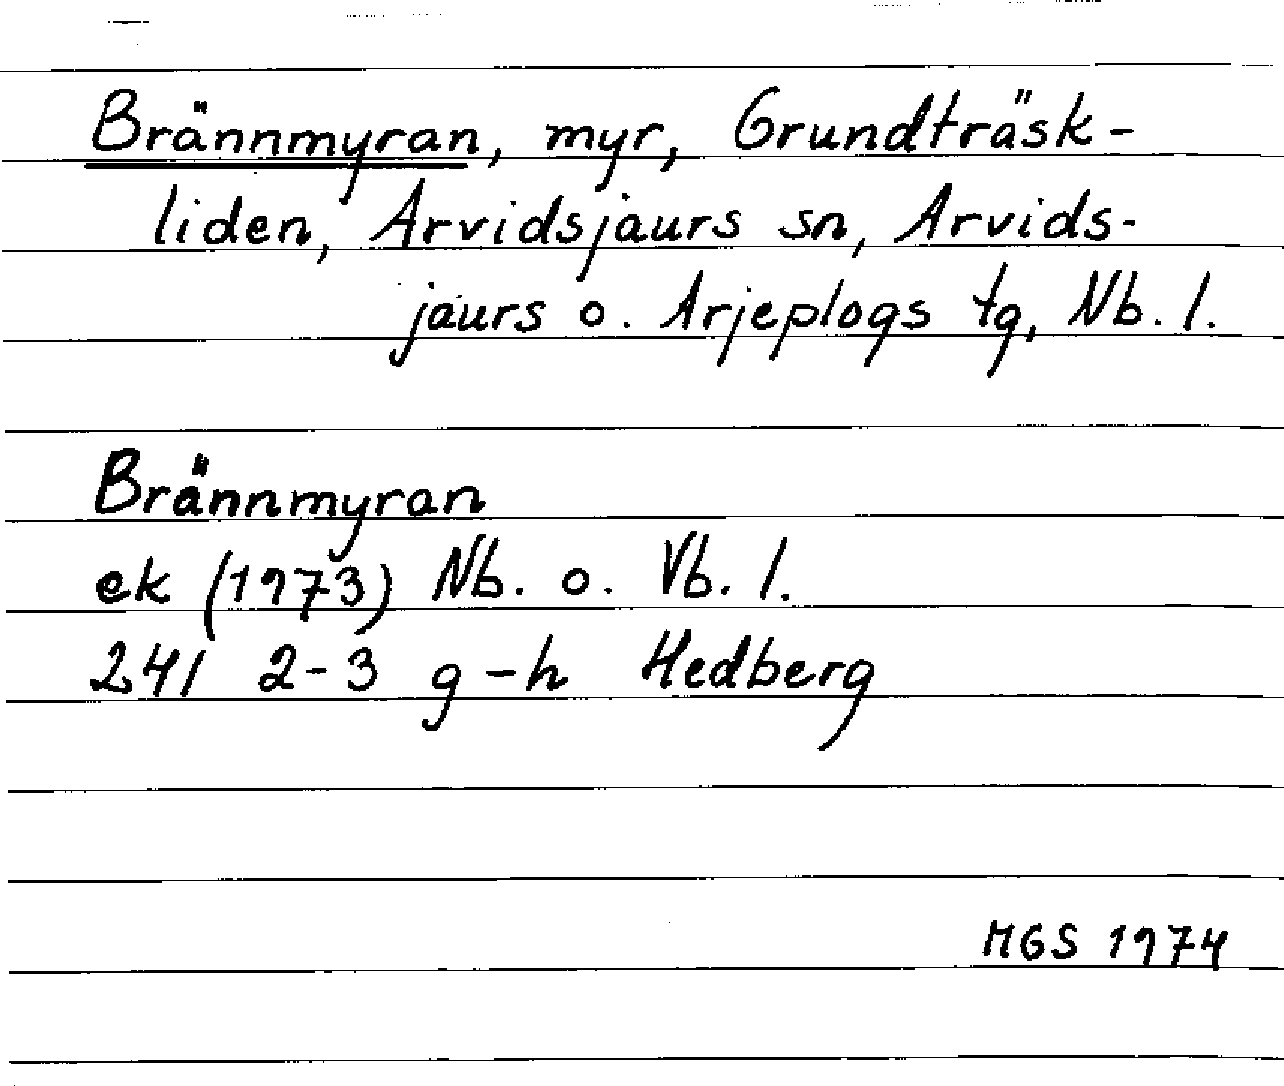 Brännmyran, myr, Grundträsk-
liden, Arvidsjaurs sn, Arvids-
jaurs o. Arjeplogs tg, Nb. l.
Brännmyran
ek (1973) Nb. o. Vb. l.
241 2-3 g-h Hedberg
MGS 1974